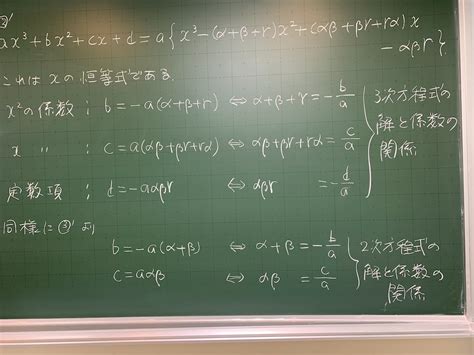 ③'
ax³+bx²+cx+d=a{x³-(α+β+γ)x²+(αβ+βγ+γα)x
-αβγ}
これは xの恒等式である
x²の係数; b=-a(α+β+γ) ⇔ α+β+γ=-b/a
x 〃 ; c=a(αβ+βγ+γα) ⇔ αβ+βγ+γα=c/a
定数項 ; d=-aαβγ ⇔ αβγ =-d/a
3次方程式の
解と係数の
関係
同様に ③' より
b=-a(α+β) ⇔ α+β=-b/a
c=aαβ ⇔ αβ=c/a
2次方程式の
解と係数の
関係